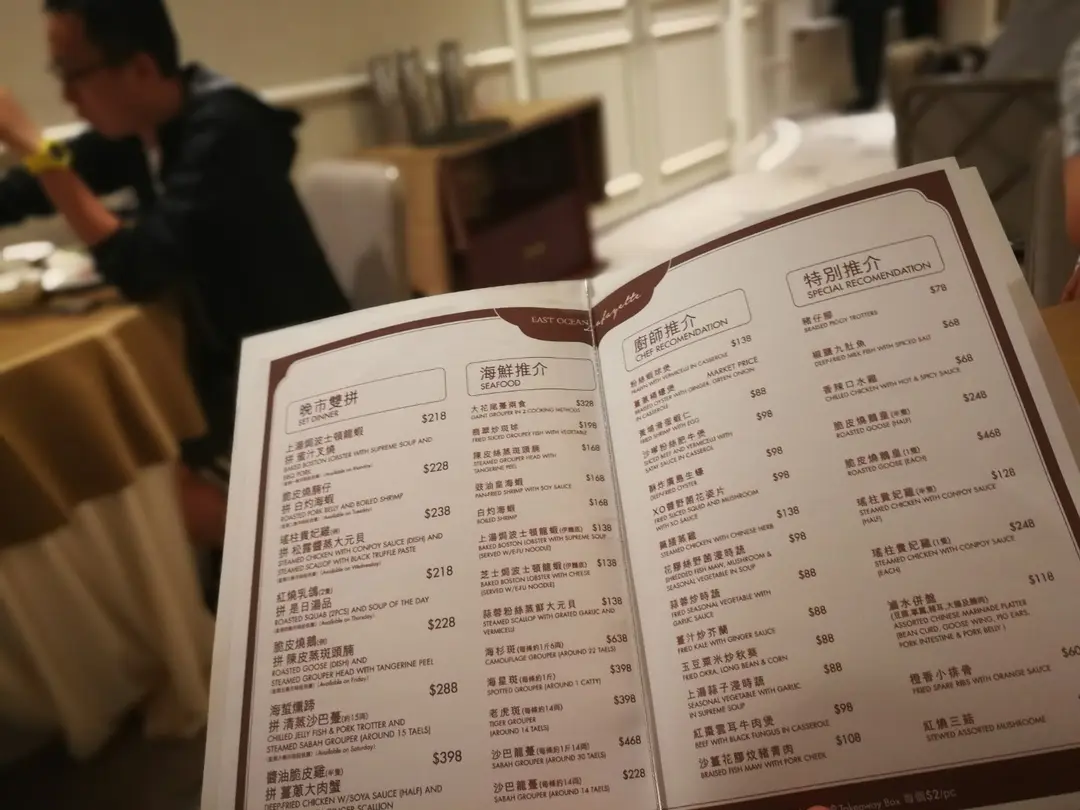 EAST OCEAN
Lafayette
晚市雙拼
SET DINNER
$218
上湯焗波士頓龍蝦
拼 蜜汁叉燒
BAKED BOSTON LOBSTER WITH SUPREME SOUP AND
BBQ PORK
$228
脆皮燒腩仔
拼 白灼海蝦
ROASTED PORK BELLY AND BOILED SHRIMP
(Available on Tuesday)
$238
瑤柱貴妃雞(例)
拼 松露醬蒸大元貝
STEAMED CHICKEN WITH CONPOY SAUCE (DISH) AND
STEAMED SCALLOP WITH BLACK TRUFFLE PASTE
(Available on Wednesday)
$218
紅燒乳鴿(2隻)
拼 是日湯品
ROASTED SQUAB (2PCS) AND SOUP OF THE DAY
(Available on Thursday)
$228
脆皮燒鵝(例)
拼 陳皮蒸斑頭腩
ROASTED GOOSE (DISH) AND
STEAMED GROUPER HEAD WITH TANGERINE PEEL
(Available on Friday)
$288
海蜇燻蹄
拼 清蒸沙巴躉(約15両)
CHILLED JELLY FISH & PORK TROTTER AND
STEAMED SABAH GROUPER (AROUND 15 TAELS)
(Available on Saturday)
$398
醬油脆皮雞(半隻)
拼 薑蔥大肉蟹
DEEP-FRIED CHICKEN W/SOYA SAUCE (HALF) AND
海鮮推介
SEAFOOD
大花尾躉兩食 $328
GIANT GROUPER IN 2 COOKING METHODS
翡翠炒斑球 $198
FRIED SLICED GROUPER FISH WITH VEGETABLE
陳皮絲蒸斑頭腩 $168
STEAMED GROUPER HEAD WITH
TANGERINE PEEL
豉油皇海蝦 $168
PAN-FRIED SHRIMP WITH SOY SAUCE
白灼海蝦 $168
BOILED SHRIMP
上湯焗波士頓龍蝦(伊麵底) $138
BAKED BOSTON LOBSTER WITH SUPREME SOUP
(SERVED W/E-FU NOODLE)
芝士焗波士頓龍蝦(伊麵底) $138
BAKED BOSTON LOBSTER WITH CHEESE
(SERVED W/E-FU NOODLE)
蒜蓉粉絲蒸鮮大元貝 $138
STEAMED SCALLOP WITH GRATED GARLIC AND
VERMICELLI
海杉斑(每條約1斤6両) $638
CAMOUFLAGE GROUPER (AROUND 22 TAELS)
海星斑(每條約1斤) $398
SPOTTED GROUPER (AROUND 1 CATTY)
老虎斑(每條約14両) $398
TIGER GROUPER
(AROUND 14 TAELS)
沙巴龍躉(每條約1斤14両) $468
SABAH GROUPER (AROUND 30 TAELS)
沙巴龍躉(每條約14両) $228
SABAH GROUPER (AROUND 14 TAELS)
廚師推介
CHEF RECOMENDATION
粉絲蝦球煲 $138
PRAWN WITH VERMICELLI IN CASSEROLE
MARKET PRICE
BRAISED OYSTER WITH GINGER, GREEN ONION
IN CASSEROLE
$88
FRIED SHRIMP WITH EGG
沙嗲粉絲肥牛煲 $98
SLICED BEEF AND VERMICELLI WITH
SATAY SAUCE IN CASSEROLE
酥炸廣島生蠔 $98
DEEP-FRIED OYSTER
XO醬野菌花姿片 $98
FRIED SLICED SQUID AND MUSHROOM
WITH XO SAUCE
$138
STEAMED CHICKEN WITH CHINESE HERB
花膠絲野菌浸時蔬 $98
SHREDDED FISH MAW, MUSHROOM &
SEASONAL VEGETABLE IN SOUP
蒜蓉炒時蔬 $88
FRIED SEASONAL VEGETABLE WITH
GARLIC SAUCE
薑汁炒芥蘭 $88
FRIED KALE WITH GINGER SAUCE
玉豆粟米炒秋葵 $88
FRIED OKRA, LONG BEAN & CORN
上湯蒜子浸時蔬 $88
SEASONAL VEGETABLE WITH GARLIC
IN SUPREME SOUP
紅棗雲耳牛肉煲 $98
BEEF WITH BLACK FUNGUS IN CASSEROLE
沙薑花膠炆豬青肉 $108
BRAISED FISH MAW WITH PORK CHEEK
特別推介
SPECIAL RECOMENDATION
豬仔腳 $78
BRAISED PIGGY TROTTERS
椒鹽九肚魚 $68
DEEP-FRIED NILK FISH WITH SPICED SALT
香辣口水雞 $68
CHILLED CHICKEN WITH HOT & SPICY SAUCE
脆皮燒鵝皇(半隻) $248
ROASTED GOOSE (HALF)
脆皮燒鵝皇(1隻) $468
ROASTED GOOSE (EACH)
瑤柱貴妃雞(半隻) $128
STEAMED CHICKEN WITH CONPOY SAUCE
(HALF)
瑤柱貴妃雞(1隻) $248
STEAMED CHICKEN WITH CONPOY SAUCE
(EACH)
滷水併盤 $118
ASSORTED CHINESE MARINADE PLATTER
(BEAN CURD, GOOSE WING, PIG EARS,
PORK INTESTINE & PORK BELLY )
橙香小排骨 $60
FRIED SPARE RIBS WITH ORANGE SAUCE
紅燒三菇
STEWED ASSORTED MUSHROOME
Takeaway Box 每個$2/pc